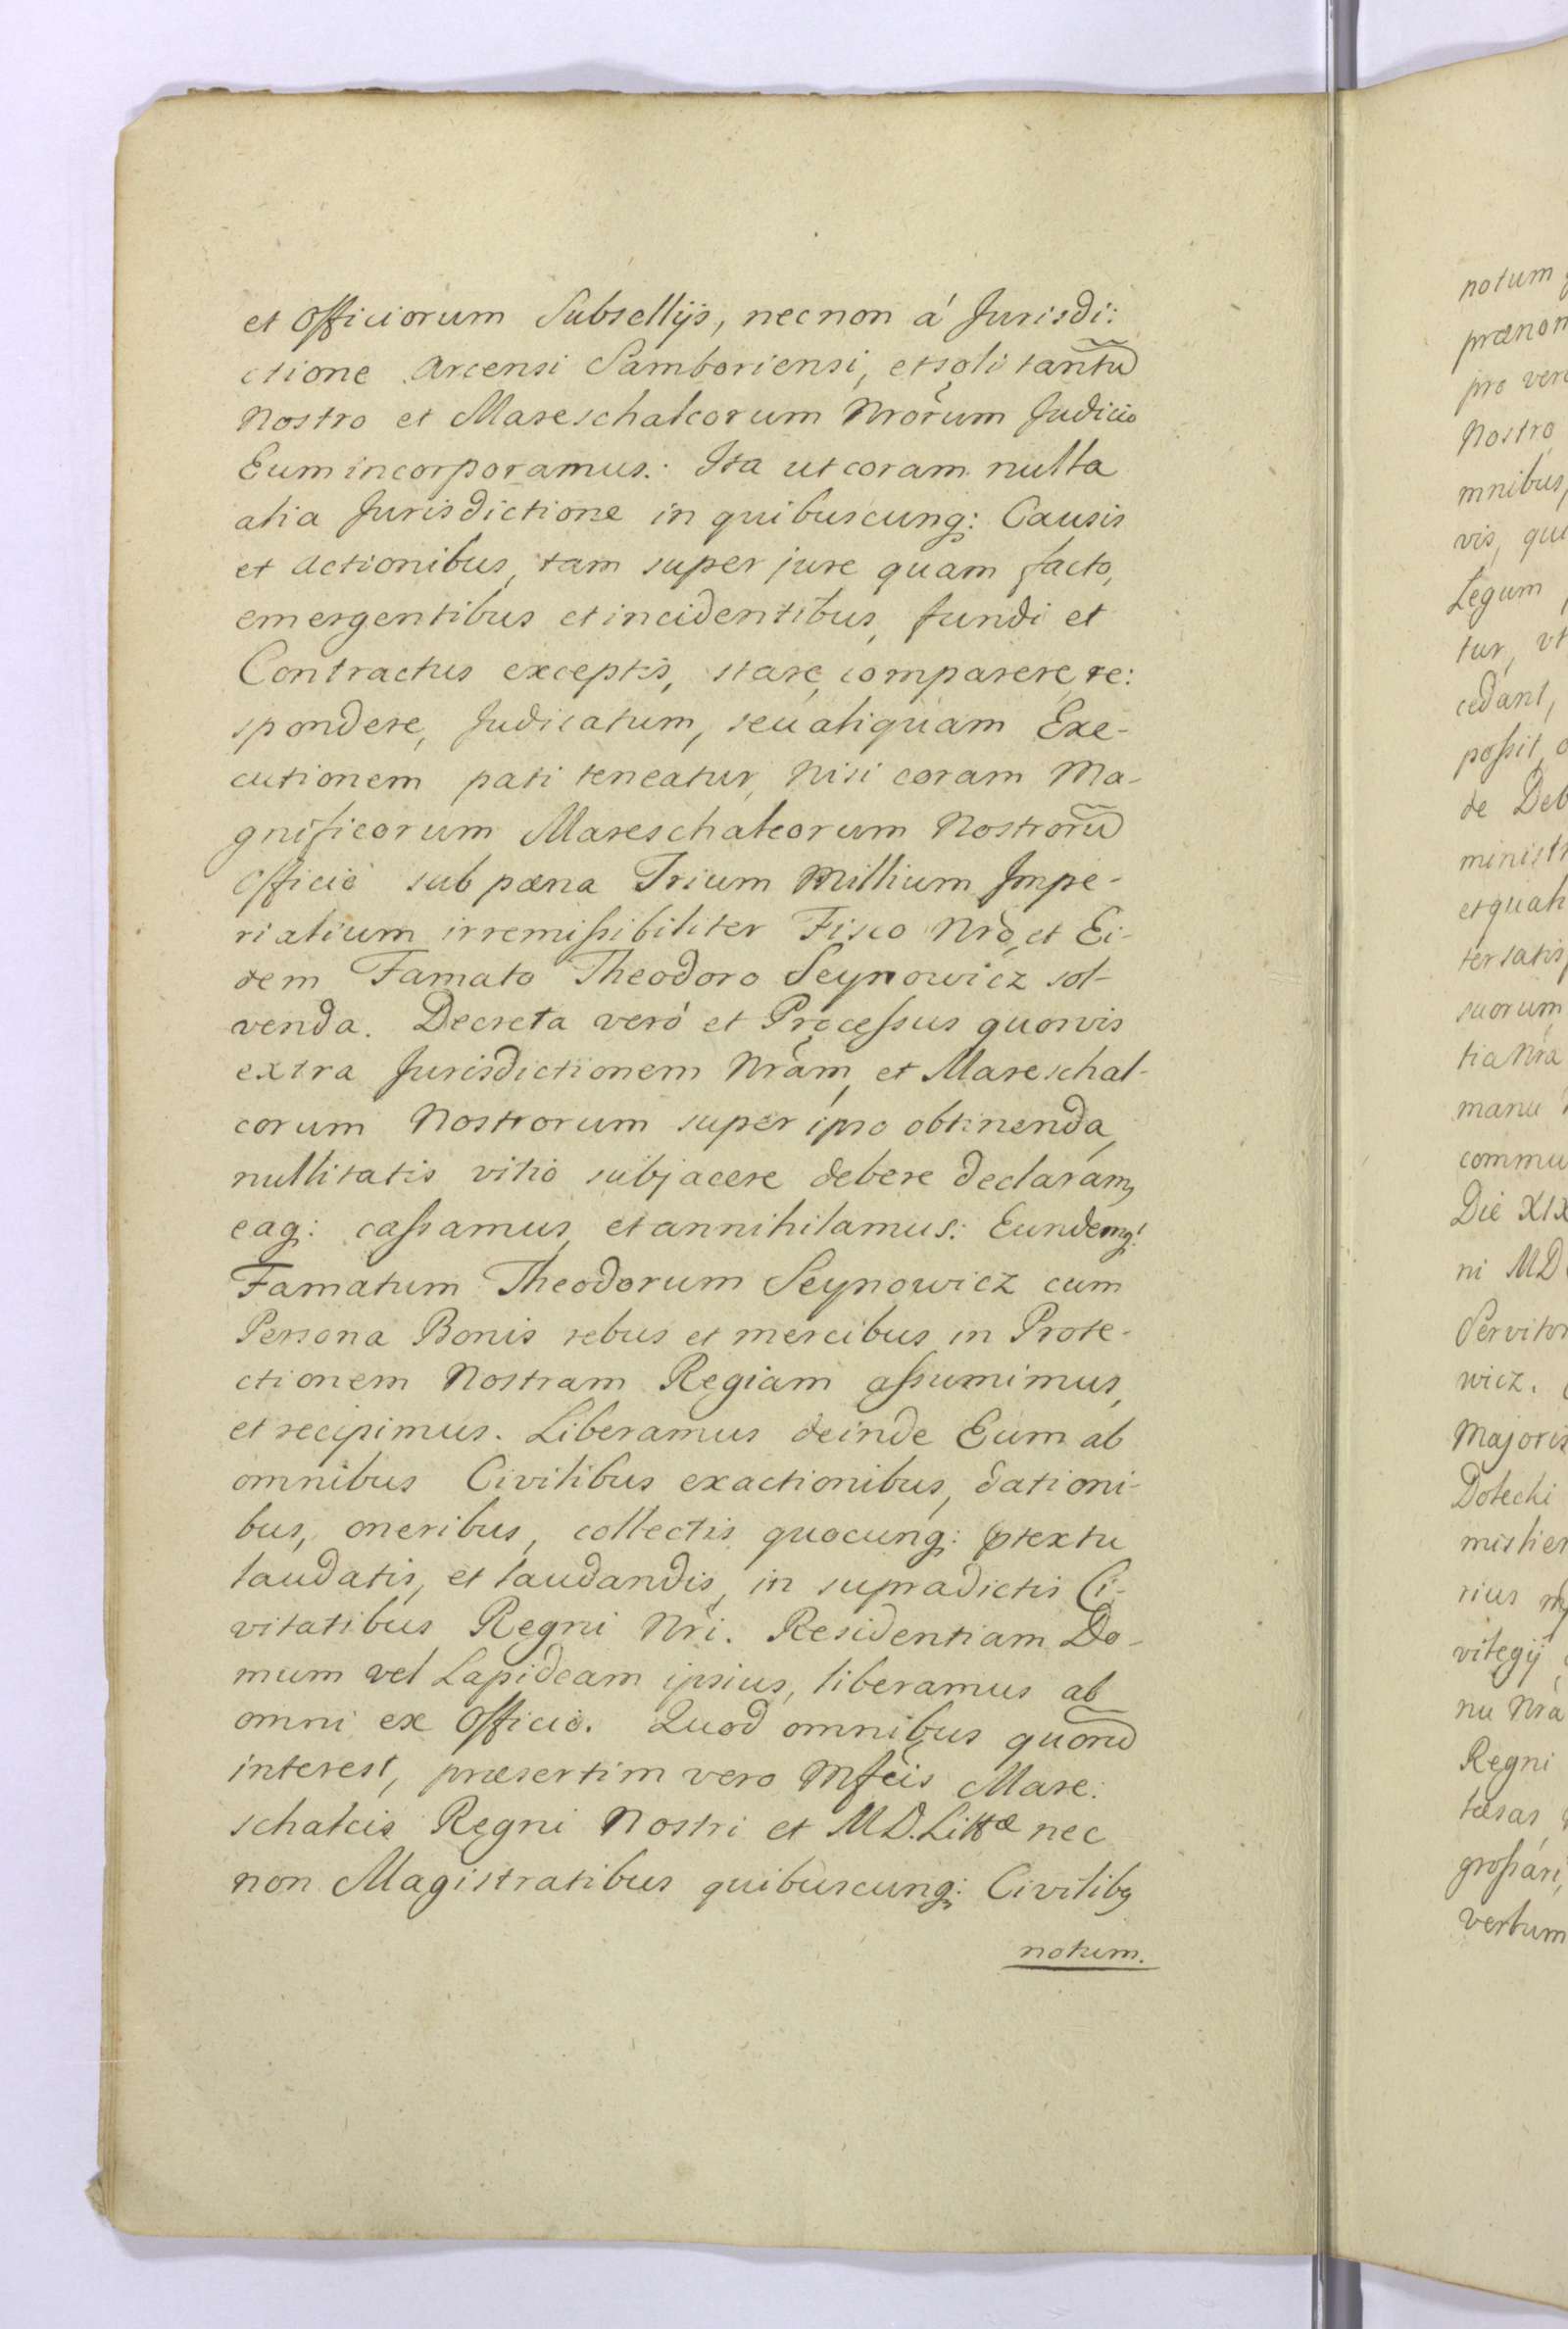 et Officiorum Subsellijs, necnon á Jurisdi:
ctione Arcensi Samboriensi, et soli tantũ
Nostro et Mareschalcorum Nrõrum Judicio
Eum incorporamus: Ita ut coram nulla
alia Jurisdictione in quibuscunq: Causis
et Actionibus, tam super jure quam facto,
emergentibus et incidentibus, fundi et
Contractus exceptis, stare, comparere, re:
spondere, Judicatum, seu aliquam Exe-
cutionem pati teneatur, Nisi coram Ma-
gnificorum Mareschalcorum Nostrorũ
Officio sub pœna Trium Millium Impe-
rialium irremißibiliter Fisco Nrõ, et Ei-
dem Famato Theodoro Seynowicz sol-
venda. Decreta veró et Proceßus quovis
extra Jurisdictionem Nrãm, et Mareschal-
corum Nostrorum super ipso obtinenda,
nullitatis vitio subjacere debere declaram9
eaq: caßamus, et annihilamus: Eundemq:
Famatum Theodorum Seynowicz cum
Persona Bonis rebus et mercibus in Prote-
ctionem Nostram Regiam aßumimus,
et recipimus. Liberamus deinde Eum ab
omnibus Civilibus exactionibus, dationi-
bus, oneribus, collectis quocunq: ptextu
laudatis, et laudandis, in supradictis Ci-
vitatibus Regni Nri. Residentiam Do-
mum vel Lapideam ipsius, liberamus ab
omni ex Officio. Quod omnibus quorũ
interest, præsertim vero Mfcis Mare:
schalcis Regni Nostri et M.D. Littæ nec
non Magistratibus quibuscunq: Civilib9
notum.
notum
prænom
pro vero
Nostro
mnibus,
vis, qui
Legum
tur, vt
cedant,
poßit
de Deb
ministr
et quali
ter satis
suorum
tia Nra
manu
commu
Die XIX
ni MD
Servitor
wicz.
Majoris
Dolechi
misliens
rius
vilegij
nu Nra
Regni
teras
großari
verbum